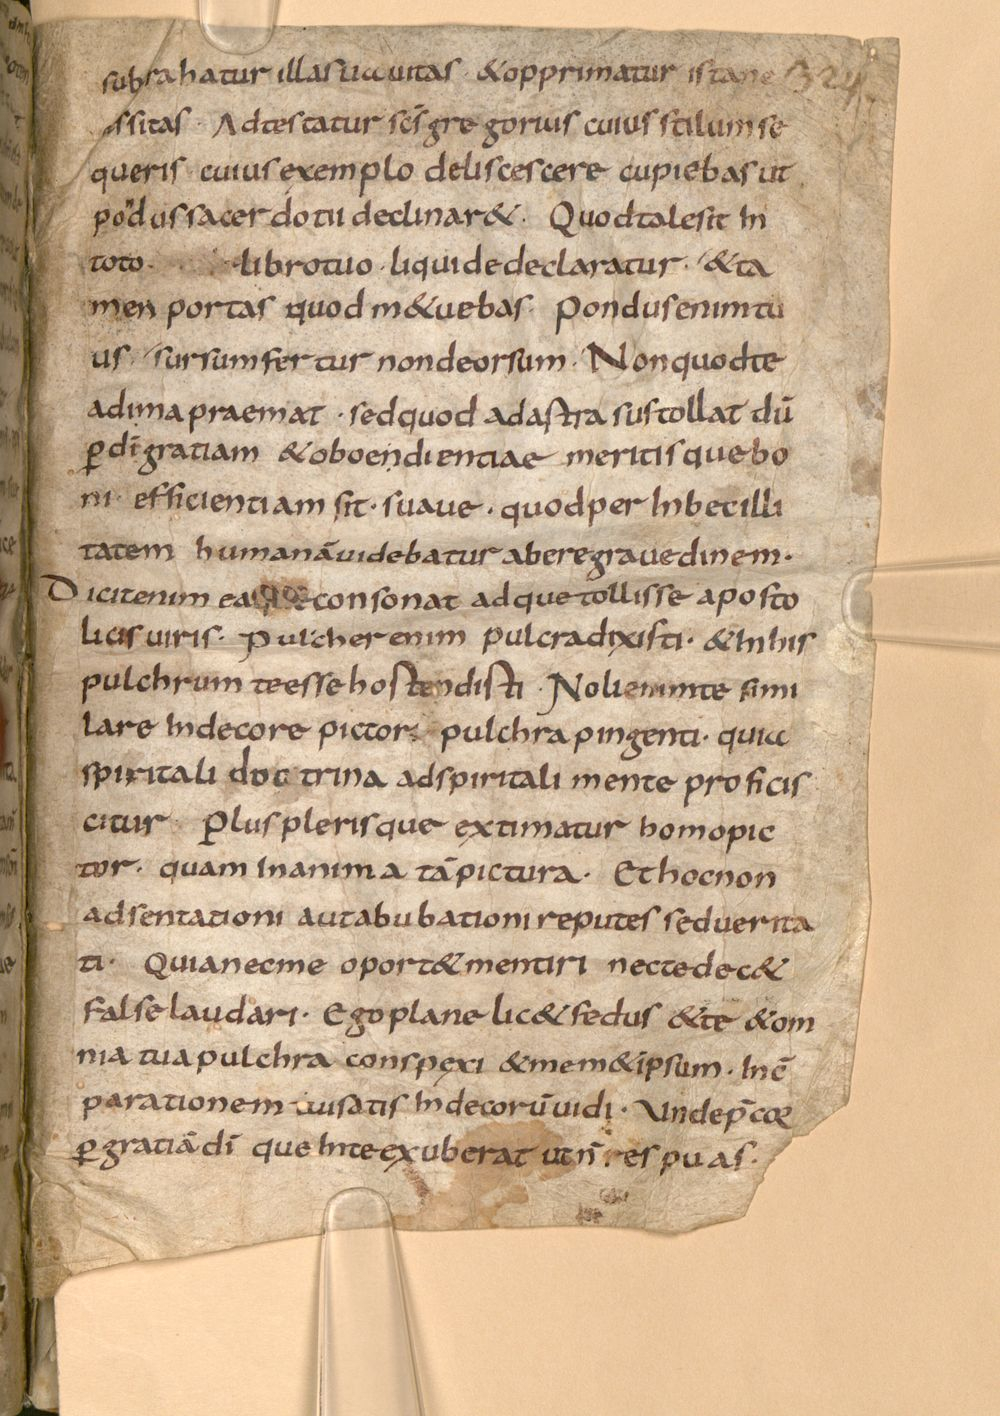 subtrahatur illa suauitas · & opprimatur ista ne 324
essitas · Adtestatur scs̄ gregorius cuius stilum se
queris · cuius exemplo deliscescere cupiebas ut
pōdus sacerdotii declinar& · Quod tale sit In
toto · libro tuo · liquide declaratur · & ta
men portas quod m&uebas · Pondus enim tu
us · sursum fertur non deorsum · Non quod te
ad ima praemat · sed quod ad astra sustollat dū
ꝑ dī gratiam & oboendientiae meritis que bo
ni · efficientiam sit · suaue · quod per Inbecilli
tatem humanā uidebatur abere grauedinem ·
Dicit enim ea consonat ad que tollisse aposto
licis uiris · Pulcher enim pulcra dixisti · & In his
pulchrum te esse hostendisti · Noli enim te simi
lare Indecore pictori pulchra pingenti · quia
spiritali doctrina ad spiritali mente proficis
citur · Plus plerisque extimatur homo pic
tor · quam inanima tā pictura · Et hoc non
adsentationi aut abubationi reputes sed uerita
ti · Quia nec me oport& mentiri nec te dec&
false laudari · Ego plane lic& fedus & te & om
nia tua pulchra conspexi & mem& ipsum · In cō
parationem uisatis Indecorū uidi · Unde p̄cor
ꝑ gratiā dī que Inte exuberat ut n̄ respuas ·